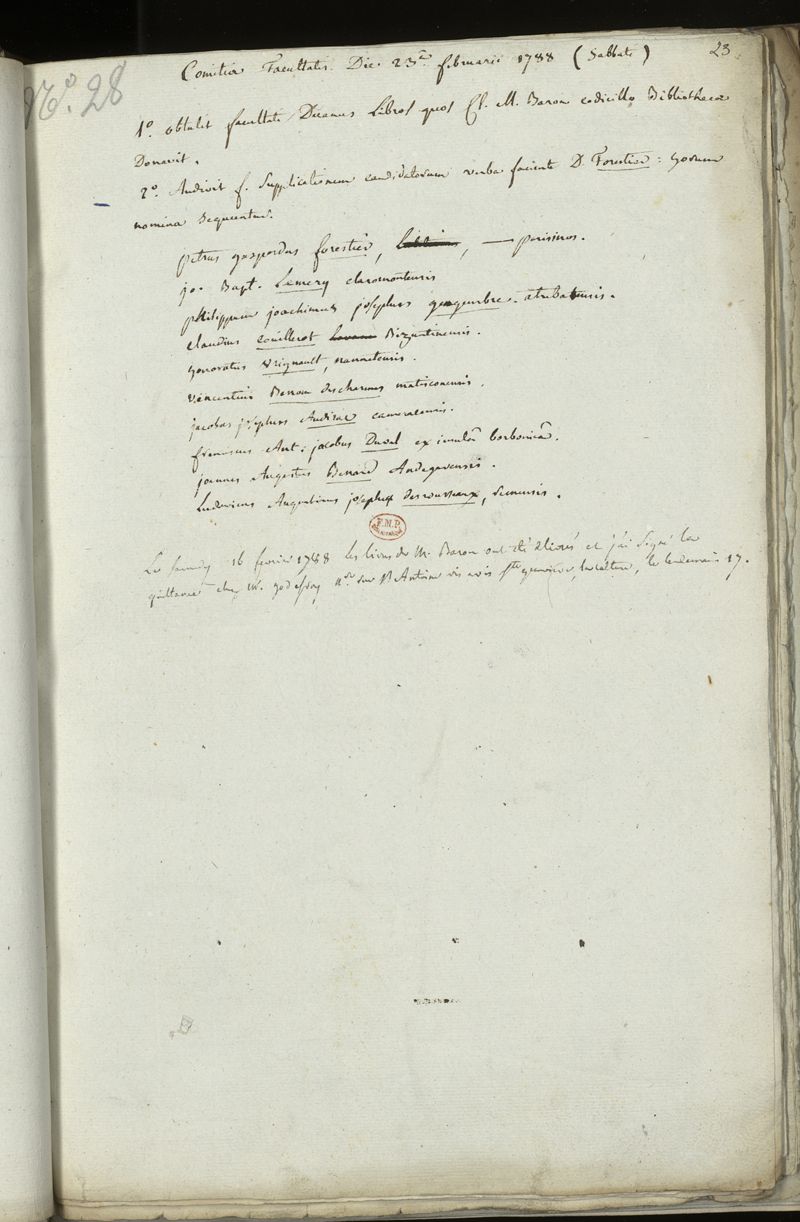 23
N.° 28
Comitia Facultatis. Die. 23ᵃ februarii 1788 (Sabbati)
1.° obtulit facultati Decanus Libros quos Cl. M. Baron codicillo Bibliothecæ
Donavit.
2.° Audivit f. supplicationem candidatorum verba faciente D. Forestier: quorum
nomina sequuntur.
petrus gaspardus forestier, parisinus.
jo. Bapt. Lemery claromontensis
philippus joachimus josephus atrebatensis.
claudius couillerot Bizuntinensis.
honoratus Vrignault, nannetensis.
vincentius Besson descharmes matisconensis.
jacobus josephus Audirac cameracensis.
franciscus Ant: jacobus Duval ex insulâ borboniâ.
joannes Augustus Benard Andegavensis.
Ludovicus Augustinus josephus desrousseaux, senensis.
F.M.P.
Le samedy 16 fevrier 1788 les livres de M. Baron ont été délivrés et j'ai signé la
quittance chez M. godefroy nre rue St Antoine vis avis la culture, le lendemain 17.